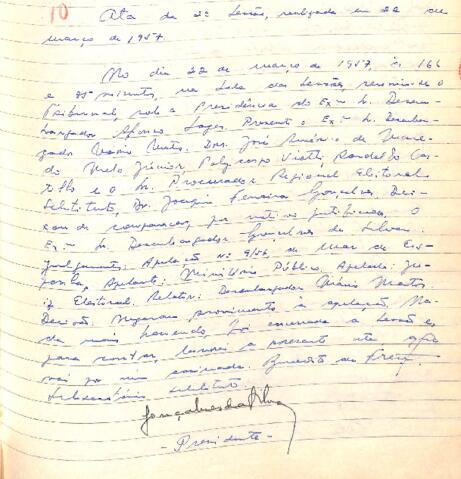 10
Ata da 2ª Sessão, realizada em 22 de
março de 1957.
No dia 22 de março de 1957, às 16h
e 35 minutos, na Sala das Sessões, reuniu-se o
Tribunal, sob a Presidência do Exmº Sr. Desem-
bargador Afonso Lages. Presentes o Exmº Sr. Desembar-
gador Mário Matos, Drs. José Américo de Macê-
do, Melo Júnior, Policarpo Viotti, Cas-
tilho e o Sr. Procurador Regional Eleitoral
Substituto, Dr. Joaquim Ferreira Gonçalves. Dei-
xou de comparecer, por motivo justificado, o
Exmº Sr. Desembargador Gonçalves da Silva.
Julgamentos: Apelação Nº 9/56, de Mar de Es-
panha, Apelante: Ministério Público. Apelado: Ju-
iz Eleitoral. Relator: Desembargador Mário Matos.
Decisão: Negaram provimento à apelação. Na-
da mais havendo, foi encerrada a sessão e,
para constar, lavrei a presente ata que
vai por mim assinada. Benedito
Secretário substituto.
Gonçalves da Silva
- Presidente -